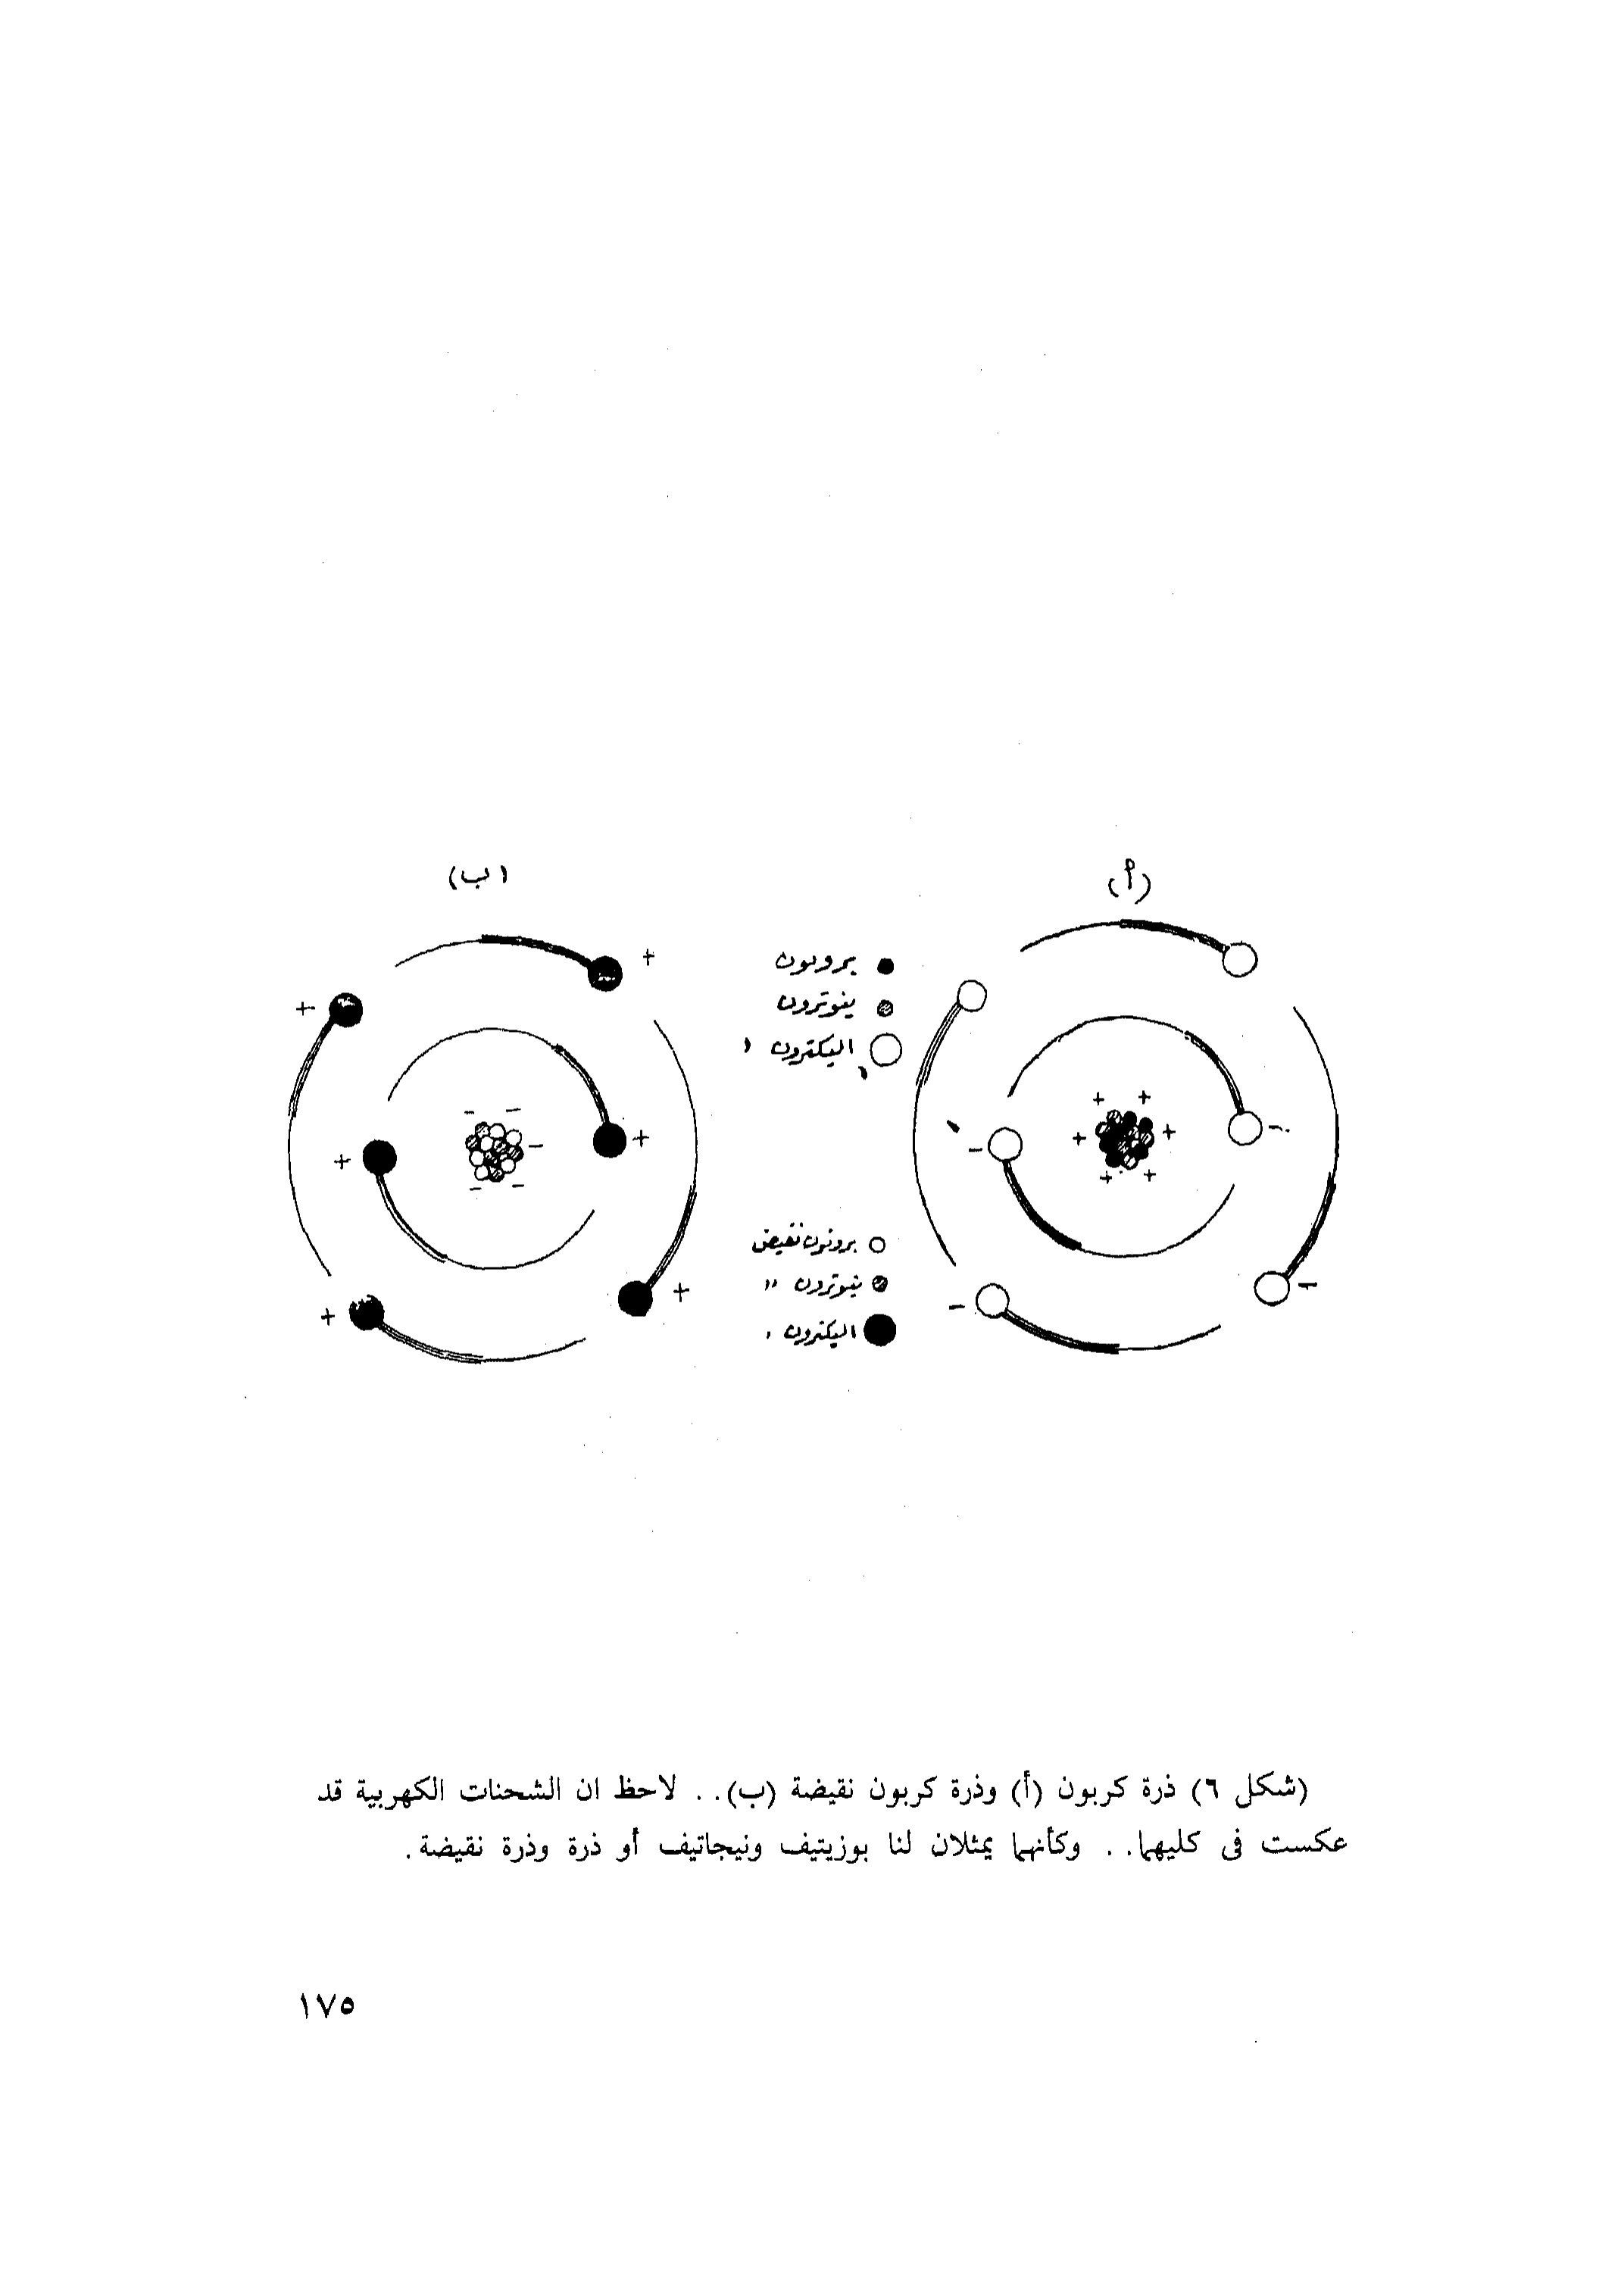 (أ)
(ب)
بروتون
نيوترون
اليكترون
بروتون نقيض
نيوترون "
اليكترون "
(شكل ٦) ذرة كربون (أ) وذرة كربون نقيضة (ب).. لاحظ ان الشحنات الكهربية قد
عكست فى كليهما.. وكأنهما يمثلان لنا بوزيتيف ونيجاتيف أو ذرة وذرة نقيضة.
١٧٥